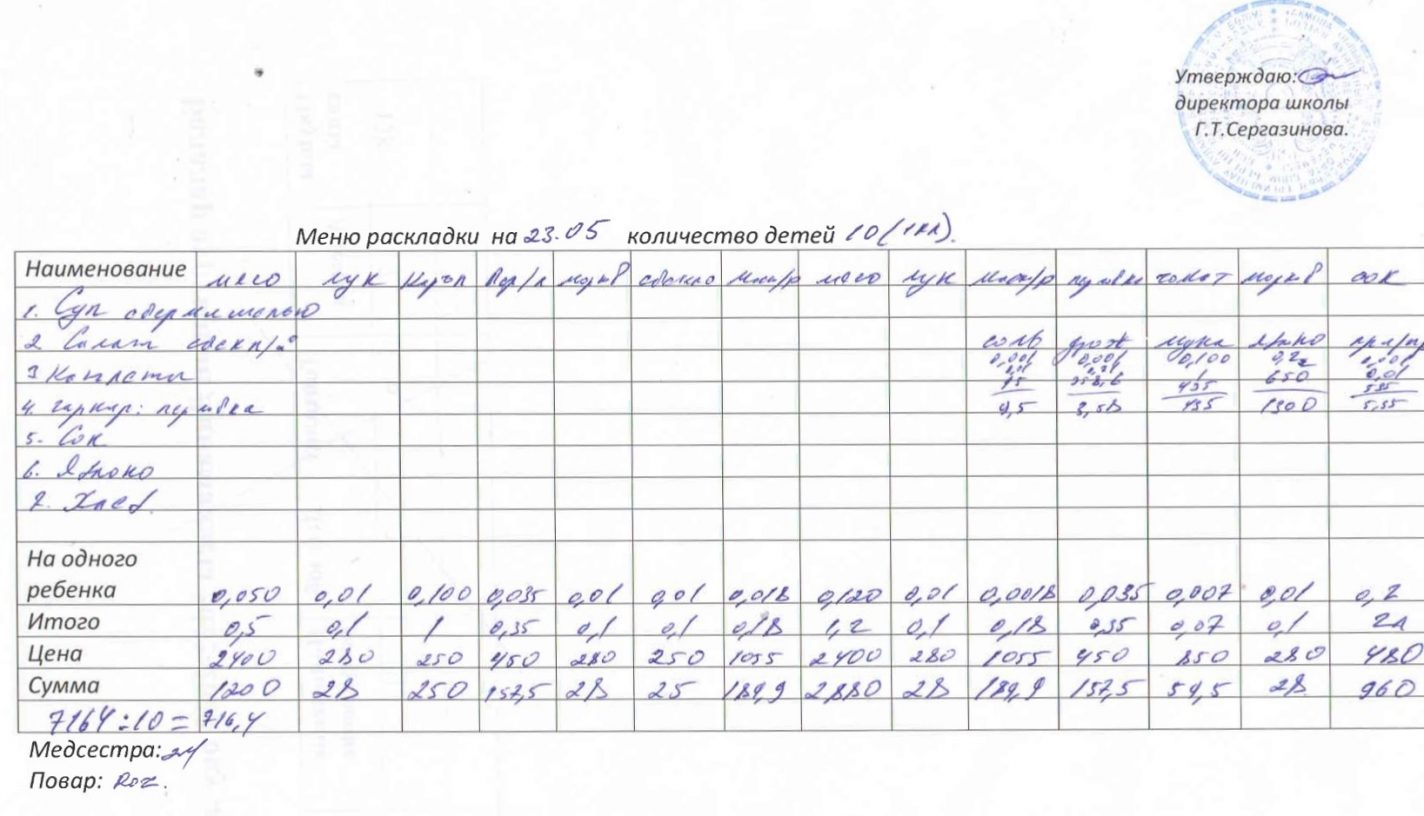 Утверждаю:
директора школы
Г.Т.Сергазинова.
Меню раскладки на 23.05 количество детей 10 (1кл).
Наименование мясо лук Картоп Вер/л морков свекла Масл/р мясо лук Масл/р перловка томат морков сок
1. Суп с вермишелью
2 Салат свекл/й соль дрож мука яблоко
0,001 0,001 0,100 0,2
3 Котлеты 1 650
4. гарнир: перловка 435 1300 5,35
5. Сок
6. Яблоко
7. Хлеб.
На одного
ребенка 0,050 0,01 0,100 0,035 0,01 0,01 0,018 0,120 0,01 0,0018 0,035 0,007 0,01 0,2
Итого 0,5 0,1 1 0,35 0,1 0,1 0,18 1,2 0,1 0,18 0,35 0,07 0,1 2л
Цена 2400 280 250 450 280 250 1055 2400 280 1055 450 850 280 480
Сумма 1200 28 250 157,5 28 25 189,9 2880 28 189,9 157,5 59,5 28 960
7164:10 = 716,4
Медсестра:
Повар: